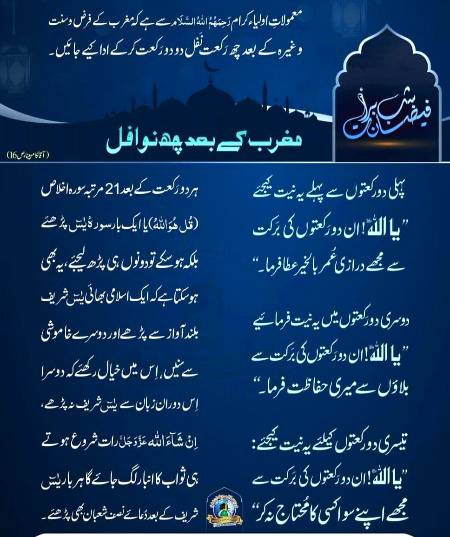 معمولاتِ اولیاء کرام رَحِمَہُمُ اللہُ السَّلَام سے ہے کہ مغرب کے فرض وسنت
وغیرہ کے بعد چھ رکعت نَفْل دو دو رکعت کر کے ادا کیے جائیں۔
فیضانِ شبِ براءت
مغرب کے بعد چھ نوافل
پہلی دو رکعتوں سے پہلے یہ نیت کیجئے
”یا اللہ! ان دو رکعتوں کی برکت
سے مجھے درازیِ عُمر بالخیر عطا فرما۔“
دوسری دو رکعتوں میں یہ نیت فرمائیے
”یا اللہ! ان دو رکعتوں کی بَرَکت سے
بلاؤں سے میری حفاظت فرما۔“
تیسری دو رکعتوں کیلئے یہ نیت کیجئے:
”یا اللہ! ان دو رکعتوں کی بَرَکت سے
مجھے اپنے سوا کسی کا مُحتاج نہ کر“
ہر دو رَکعت کے بعد 21 مرتبہ سورہ اخلاص
(قُل ھُوَاللہُ) یا ایک بار سورۂ یٰسٓ پڑھئے
بلکہ ہو سکے تو دونوں ہی پڑھ لیجئے، یہ بھی
ہو سکتا ہے کہ ایک اسلامی بھائی یٰسٓ شریف
بلند آواز سے پڑھے اور دوسرے خاموشی
سے سنیں، اِس میں خیال رکھئے کہ دوسرا
اِس دوران زبان سے یٰسٓ شریف نہ پڑھے،
اِنْ شَآءَاللہ عَزَّوَجَلَّ رات شروع ہوتے
ہی ثواب کا انبار لگ جائے گا ہر بار یٰسٓ
شریف کے بعد دُعائے نصف شعبان بھی پڑھئے۔